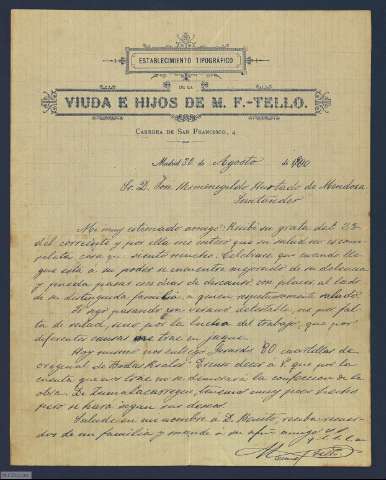 ESTABLECIMIENTO TIPOGRÁFICO
DE LA
VIUDA E HIJOS DE M. F.-TELLO.
CARRERA DE SAN FRANCISCO, 4
Madrid 30 de Agosto de 1900
Sr. D. Don Hermenegildo Hurtado de Mendoza
Santander
Mi muy estimado amigo: Recibí su grata del 23
del corriente y por ella me entero que su salud no es com-
pleta cosa que siento mucho. Celebraré que cuando lle-
gue esta a su poder se encuentre mejorado de su dolencia
y pueda pasar unos dias de descanso con placer al lado
de su distinguida familia a quien respetuosamente saludo.
Yo sigo pasando un verano detestable, no por fal-
ta de salud, sino por la lucha del trabajo, que por
diferentes causas me trae en jaque.
Hoy mismo nos entregó Gerardo 80 cuartillas de
original de Bodas Reales. Excuso decir a V. que por la
cuenta que nos trae no se demorará la confección de la
obra. De Zumalacarregui tenemos muy poco hecho
pero se hará segun sus deseos.
Salude en mi nombre a D. Benito, reciba recuer-
dos de mi familia y mande a su afmo amigo